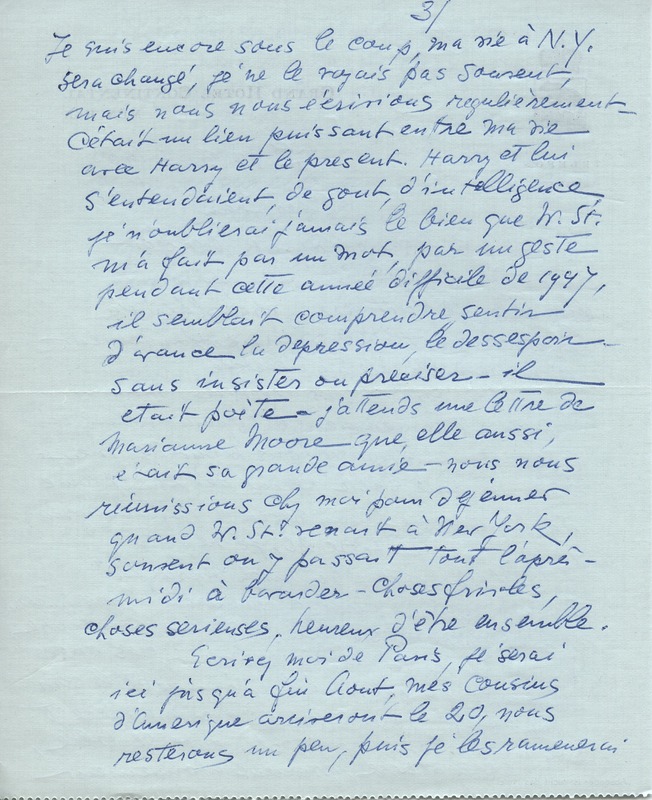 3/
Je suis encore sous le coup, ma vie à N.Y.
sera changé, je ne le voyais pas souvent,
mais nous nous ecrivions regulièrement—
C'était un lien puissant entre ma vie
avec Harry et le present. Harry et lui
s'entendaient, de gout, d'intelligence
je n'oublierai jamais le bien que W. St.
m'a fait par un mot, par un geste
pendant cette année difficile de 1947,
il semblait comprendre, sentir
d'avance la depression, le dessespoir—
sans insister ou préciser — il
etait poète — j'attends une lettre de
Marianne Moore que, elle aussi,
était sa grande amie — nous nous
réunissions chez moi pour dejeuner
quand W. St. venait à New York,
souvent on y passait tout l'après-
midi à bavarder — choses frivoles,
choses serieuses, heureux d'être ensemble.
Ecrivez moi de Paris, je serai
ici jusqu'à fin Aout, mes cousins
d'Amerique arriveront le 20, nous
resterons un peu, puis je les ramenerai